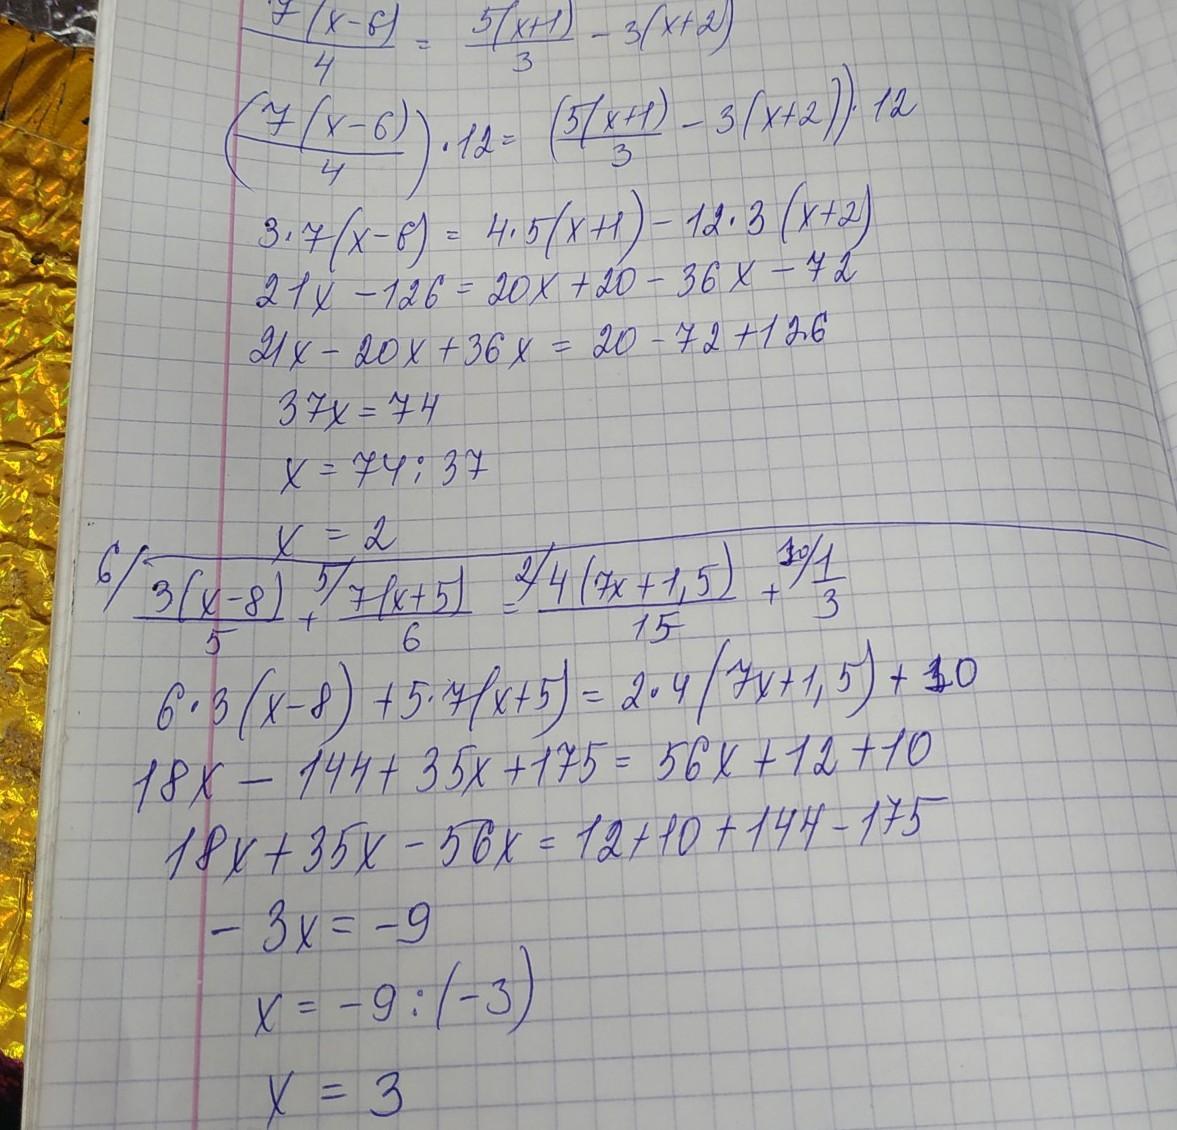 7(x-6)/4 = 5(x+1)/3 - 3(x+2)
(7(x-6)/4)·12 = (5(x+1)/3 - 3(x+2))·12
3·7(x-6) = 4·5(x+1) - 12·3(x+2)
21x - 126 = 20x + 20 - 36x - 72
21x - 20x + 36x = 20 - 72 + 126
37x = 74
x = 74 : 37
x = 2
6/ 3(x-8)/5 + 5/ 7(x+5)/6 = 2/ 4(7x+1,5)/15 + 10/ 1/3
6·3(x-8) + 5·7(x+5) = 2·4(7x+1,5) + 10
18x - 144 + 35x + 175 = 56x + 12 + 10
18x + 35x - 56x = 12 + 10 + 144 - 175
- 3x = -9
x = -9 : (-3)
x = 3